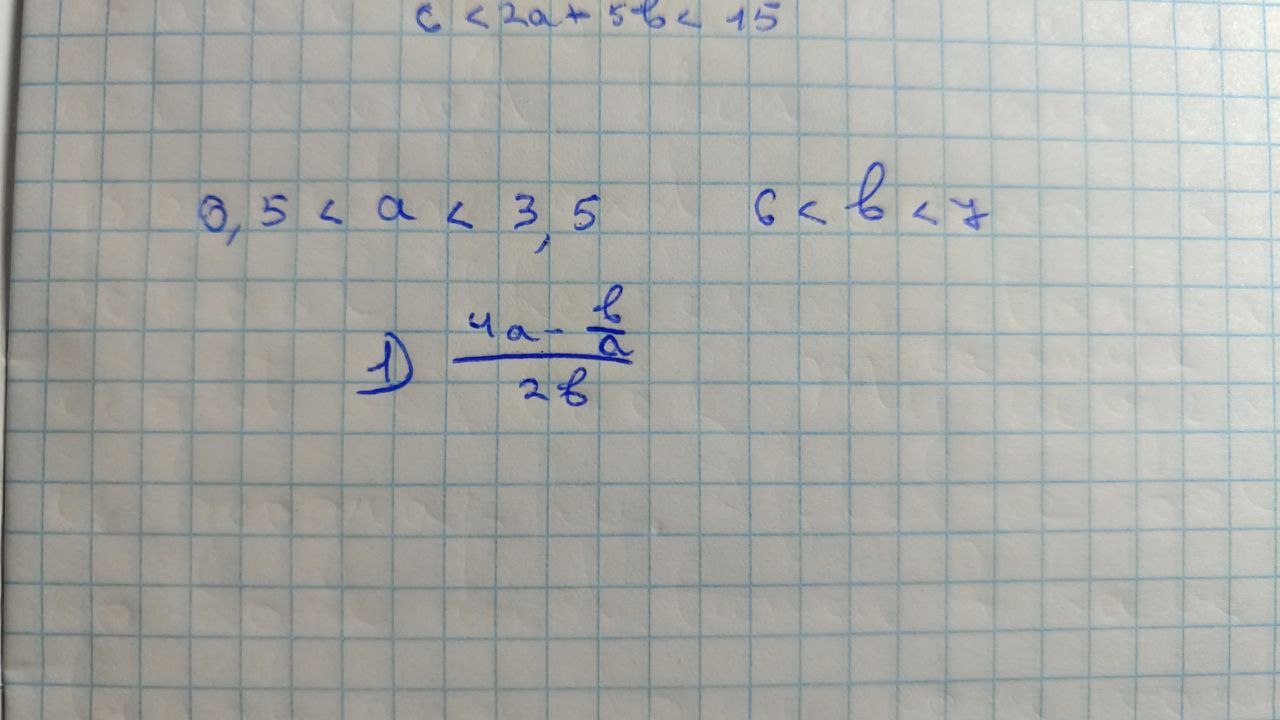 6 < 2a + 5b < 15
0,5 < a < 3,5 6 < b < 7
1) (4a - b/a) / 2b